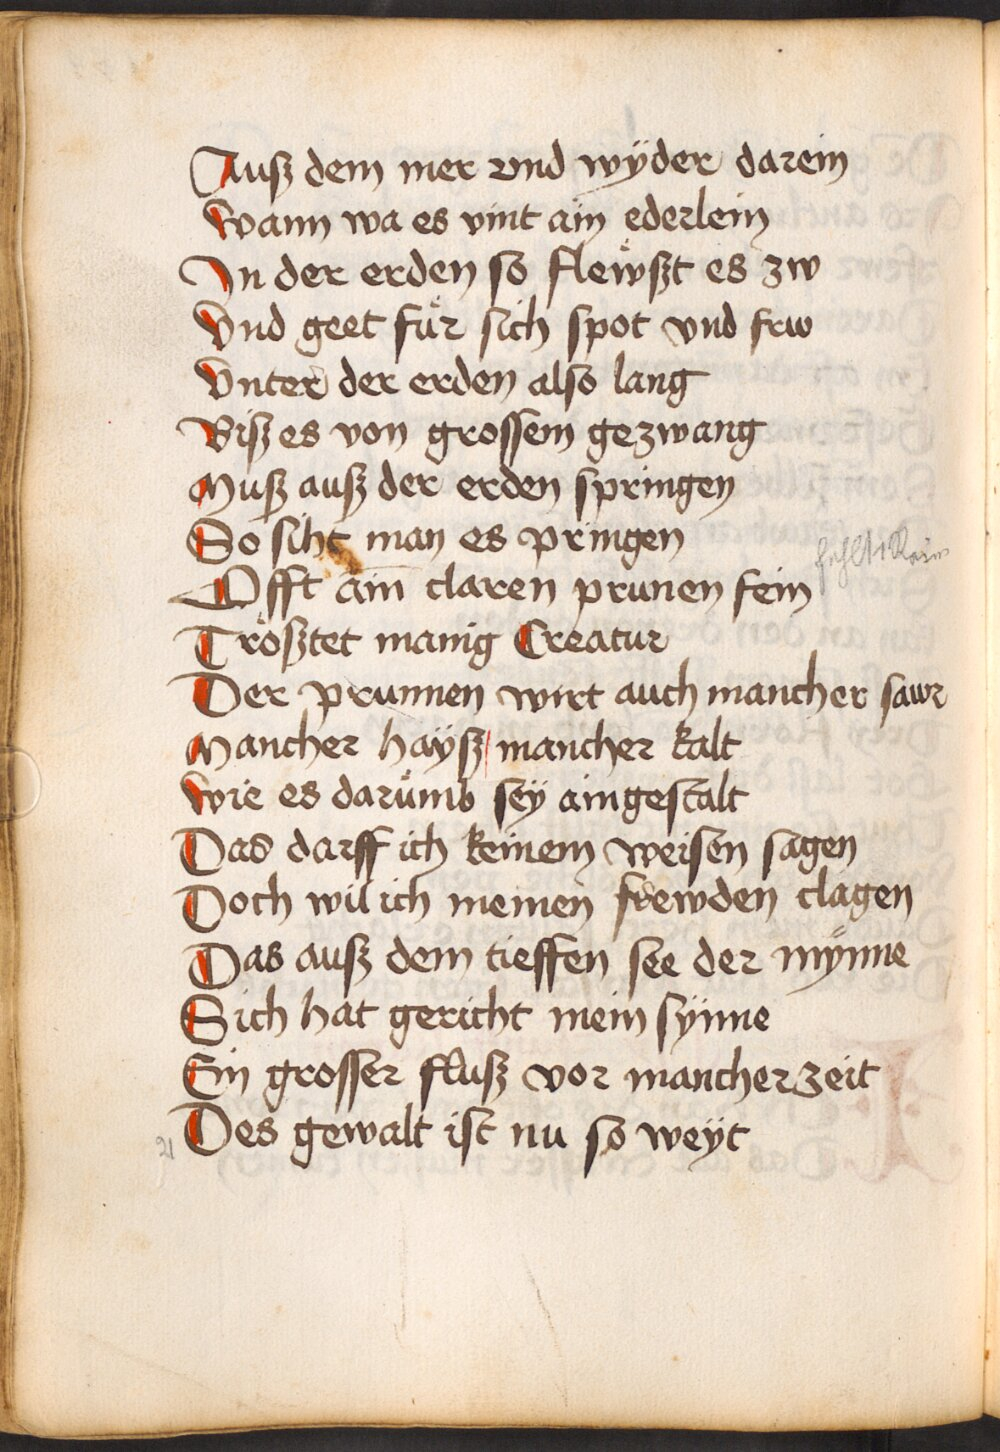 Auß dem mer vnd wÿder darein
Wann wa es vint ain ederlein
In der erden so flewßt es zw
Vnd geet fuͤr sich spot vnd frw
Vnter der erden also lang
Biß es von grossem gezwang
Muß auß der erden springen
So siht man es pringen
Offt ain claren prunen fein
fehlt 1 Reim
Troͤßtet manig Creatur
Der prunnen wirt auch mancher sawr
Mancher haÿß / mancher kalt
Wie es daruͤmb seÿ aingestalt
Das darff ich keinem weisen sagen
Doch wil ich meinen frewden clagen
Das auß dem tieffen see der mÿnne
Sich hat gericht mein sÿnne
Ein grosser fluß vor mancher zeit
Des gewalt ist nu so weÿt
21